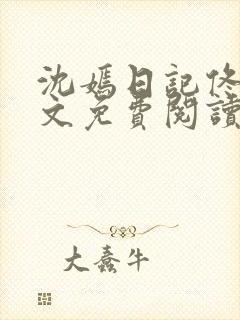 沈嫣日記佟
文免費閱讀
大蠢牛